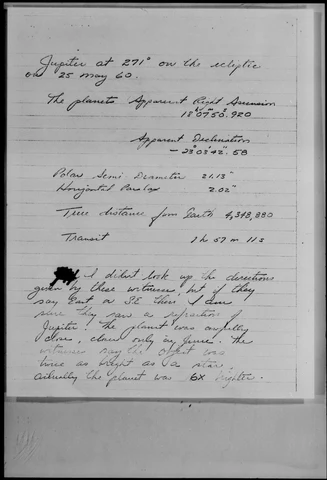 Jupiter at 271° on the ecliptic
on 25 May 60.
The planets Apparent Right Ascension
18 07 50.920
Apparent Declination
- 23 03 42.58
Polar Semi Diameter 21.13"
Horizontal Paralax 2.02"
True distance from Earth 4,
Transit 1 h 57 m 11 s
I didn't look up the directions
given by these witnesses but if they
say East or SE then I am
sure they saw a refraction of
Jupiter! The planet was awfully
close, closer only in June. The
witnesses say the object was
twice as bright as a star,
actually the planet was 6x brighter.